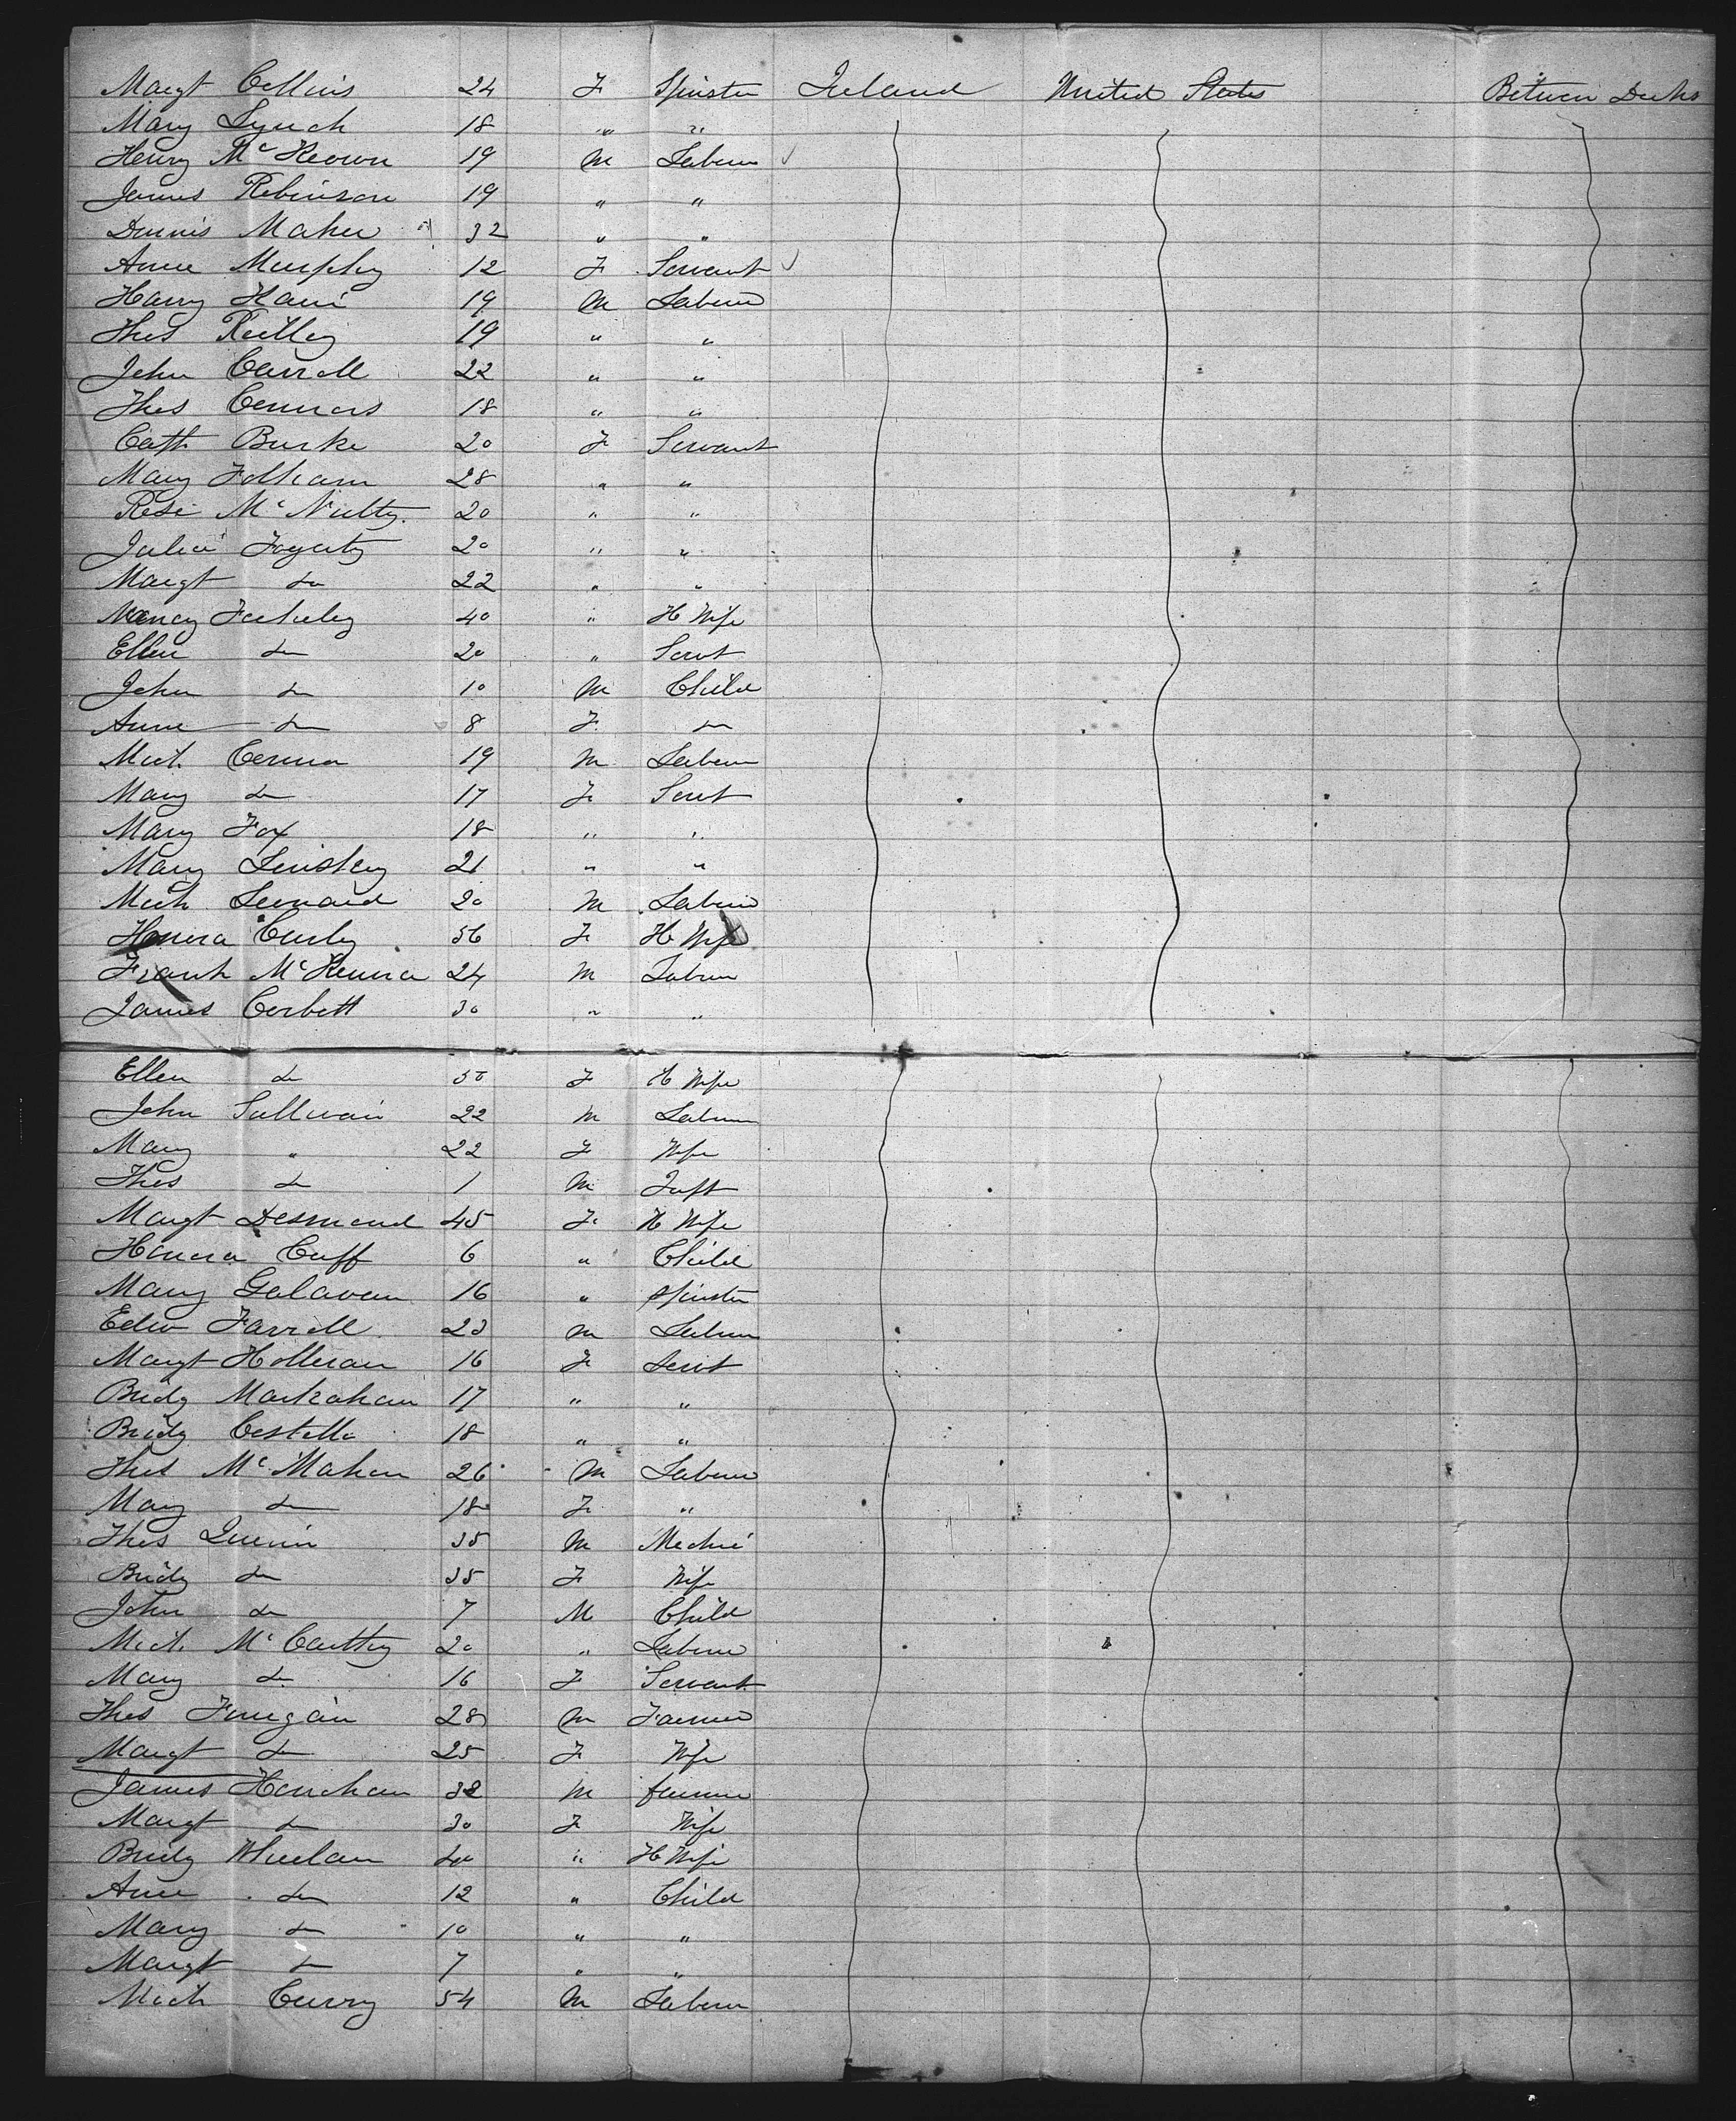 Margt Collins 24 F Spinster Ireland United States Between Decks
Mary Lynch 18 " "
Henry McKeown 19 M Labour
James Robinson 19 " "
Dennis Maher 32 " "
Anne Murphy 12 F Servant
Harry 19 M Labour
Thos Reilly 19 " "
John Carroll 22 " "
Thos Connors 18 " "
Cath Burke 20 F Servant
Mary Folham 28 " "
Rose McNulty 20 " "
Julia Fogarty 20 " "
Margt do 22 " "
Nancy 40 " H Wife
Ellen do 20 " Servt
John do 10 M Child
Anne do 8 F do
Mich. Connor 19 M Labour
Mary do 17 F Servt
Mary Fox 18 " "
Mary Linskey 21 " "
Mich Leonard 20 M Labour
Honora Curly 56 F H Wife
Frank McKenna 24 M Labour
James Corbett 30 " "
Ellen do F H Wife
John Sullivan 22 M Labour
Mary " 22 F Wife
Thos do 1 M Inft
Margt Desmond 45 F H Wife
Honora Cuff 6 " Child
Mary Galavan 16 " Spinster
Edw Farrell 23 M Labour
Margt Holleran 16 F Servt
Bridg Markaham 17 " "
Bridg Costello 18 " "
Thos McMahon 26 M Labour
Mary do 18 F "
Thos Quinn 35 M Mechic
Bridg do 35 F Wife
John do 7 M Child
Mich. McCarthy 20 " Labour
Mary do 16 F Servant
Thos Finegan 28 M Farmer
Margt do 25 F Wife
James Honohan 32 M farmer
Margt do 30 F Wife
Bridg Whelan 40 " H Wife
Anne do 12 " Child
Mary do 10 " "
Margt do 7 " "
Mich Curry 54 M Labour